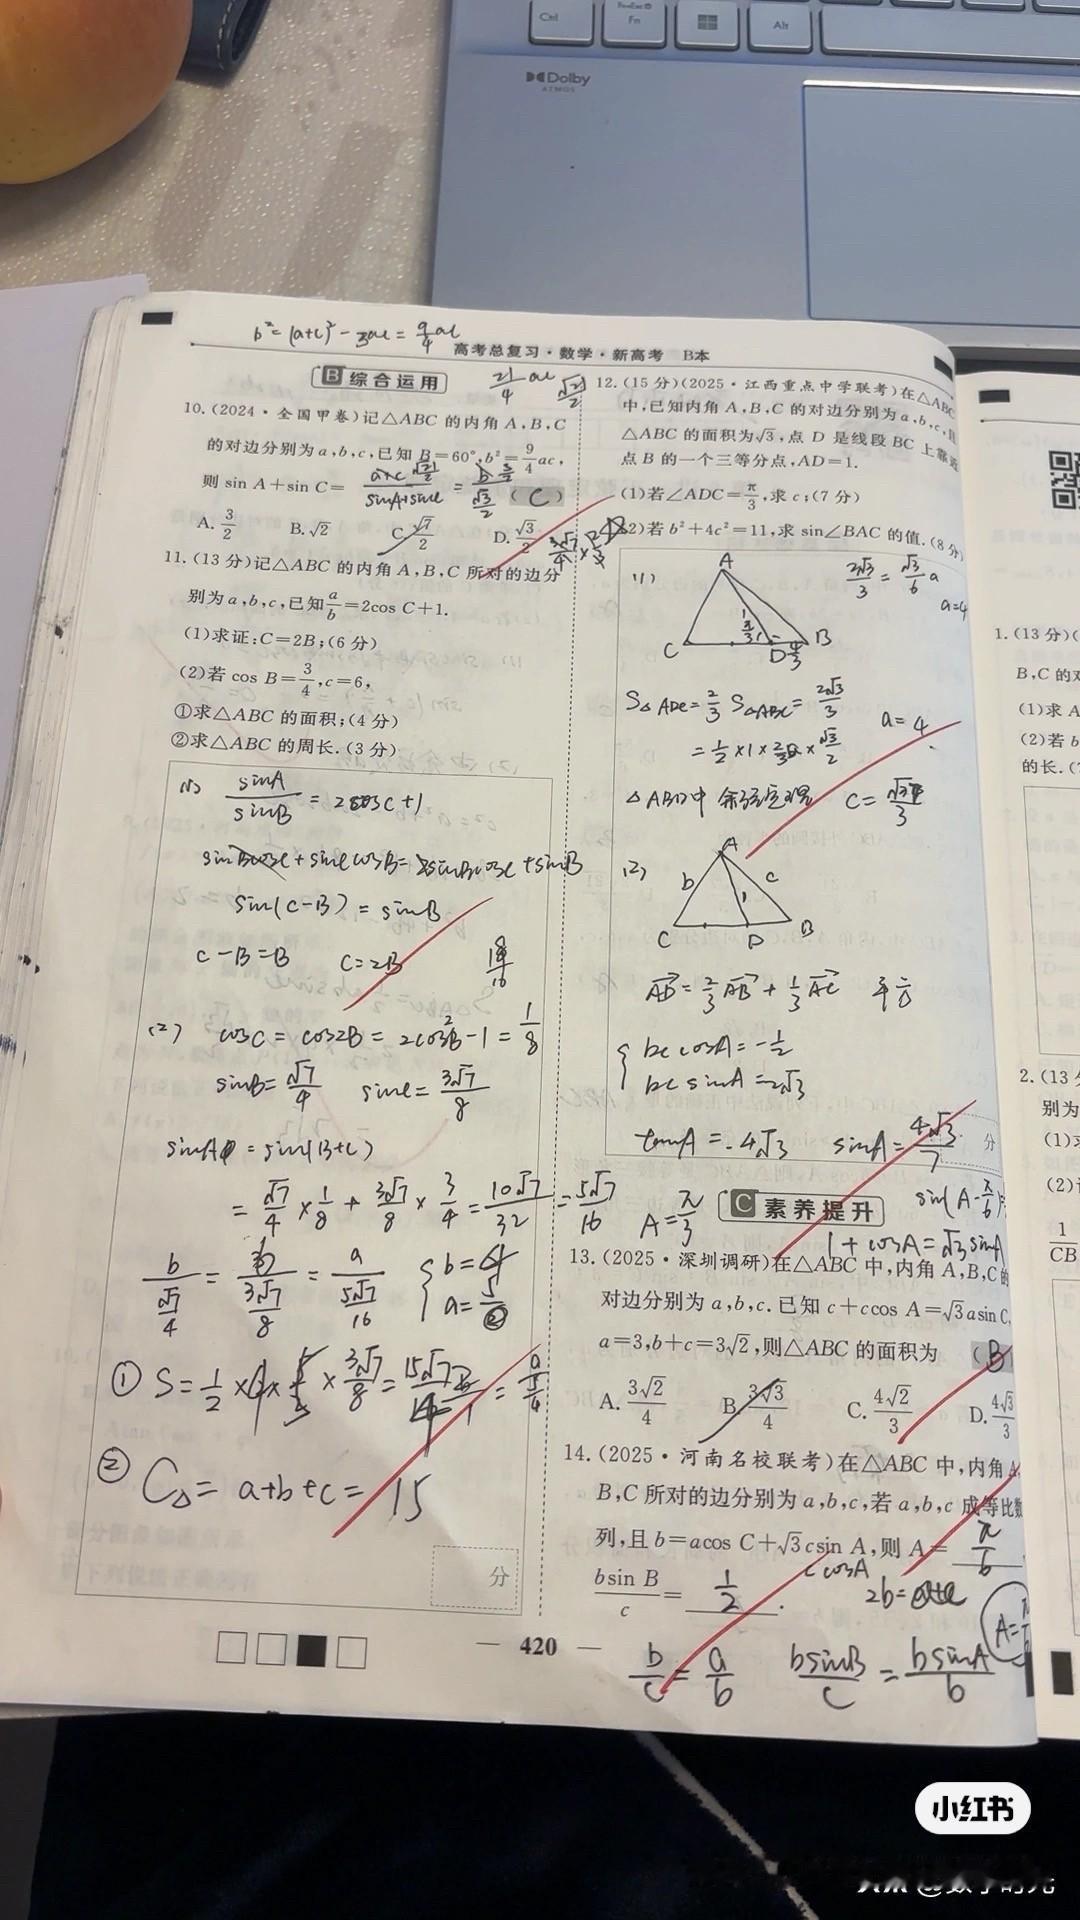 Ctrl
Fn
Alt
Dolby
ATMOS
b²=(a+c)²-3ac=9/4 ac
高考总复习·数学·新高考 B本
B 综合运用
21/4 ac
√21/2
10.(2024·全国甲卷)记△ABC 的内角 A,B,C
的对边分别为 a,b,c,已知 B=60°,b²=9/4 ac,
则 sin A+sin C= (C)
a+c √21/2 / sinA+sinC = b 3/2 / √3/2
A. 3/2 B. √2 C. √7/2 D. √3/2
11.(13 分)记△ABC 的内角 A,B,C 所对的边分
别为 a,b,c,已知 a/b=2cos C+1.
(1)求证:C=2B;(6 分)
(2)若 cos B=3/4,c=6,
①求△ABC 的面积;(4 分)
②求△ABC 的周长.(3 分)
(1) sinA/sinB = 2cosC+1
sinBcosC+sinCcosB=2sinBcosC+sinB
sin(C-B)=sinB
C-B=B C=2B
(2) cosC=cos2B=2cos²B-1=1/8
sinB=√7/4 sinC=3√7/8
sinA=sin(B+C)
=√7/4×1/8+3√7/8×3/4=10√7/32=5√7/16
b/(√7/4)=6/(3√7/8)=a/(5√7/16) {b=4 a=5
① S=1/2×4×5×3√7/8=15√7/4
② C△=a+b+c=15
分
420
12.(15 分)(2025·江西重点中学联考)在△ABC
中,已知内角 A,B,C 的对边分别为 a,b,c,且
△ABC 的面积为√3,点 D 是线段 BC 上靠近
点 B 的一个三等分点,AD=1.
(1)若∠ADC=π/3,求 c;(7 分)
(2)若 b²+4c²=11,求 sin∠BAC 的值.(8 分)
(1)
A
1
π/3
C D 4/3 B
2√3/3=√3/6 a
a=4
S△ADC=2/3 S△ABC=2√3/3
=1/2×1×2/3a×√3/2
a=4
△ABD中 余弦定理 c=√3/3
(2)
A
b 1 c
C D B
AD=2/3AB+1/3AC 平方
{bc cosA=-1/2
bc sinA=2√3
tanA=-4√3 sinA=4√3/7
分
C 素养提升
A=π/3
sin(A-π/6)=
1+cosA=√3sinA
13.(2025·深圳调研)在△ABC 中,内角 A,B,C 的
对边分别为 a,b,c.已知 c+ccos A=√3asin C,
a=3,b+c=3√2,则△ABC 的面积为 (B
A. 3√2/4 B. 3√3/4 C. 4√2/3 D. 4√3/3
14.(2025·河南名校联考)在△ABC 中,内角 A,
B,C 所对的边分别为 a,b,c,若 a,b,c 成等比数
列,且 b=acos C+√3csin A,则 A= π/6
c cosA
bsin B/c= 1/2.
2b=
A=π
b/c=a/b bsinB/c=bsinA/b
1.(13 分)(
B,C 的对
(1)求 A
(2)若 b
的长.(7
2.(13 分
别为
(1)求
(2)设
1/CB
小红书